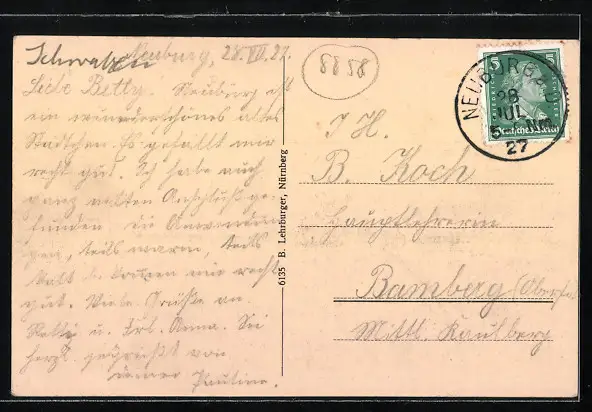 Schwaben
Neuburg, 28.VII.27.
Liebe Betty. Neuburg ist
ein wunderschönes altes
Städtchen. Es gefällt mir
recht gut. Ich habe auch
ganz netten Anschluß ge-
funden. die Anwendun-
gen, teils warm, teils
kalt bekommen mir recht
gut. Viele Grüße an
Betti u. Frl. Anna. Sei
herzl. gegrüßt von
deiner Pauline.
8858
6135 B. Lehrburger, Nürnberg
5 5
Deutsches Reich
NEUBURG
28
JUL
27
I H.
B. Koch
Hauptlehrerin
Bamberg (Oberfr.
Mittl. Kaulberg